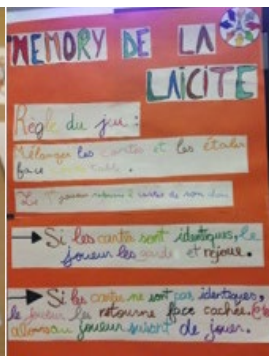 MEMORY DE LA
LAÏCITÉ
Règle du jeu :
Mélanger les cartes et les étaler
face table.
Le 1er joueur retourne 2 cartes de son choix
→ Si les cartes sont identiques, le
joueur les garde et rejoue.
→ Si les cartes ne sont pas identiques,
le joueur les retourne face cachée.
joueur suivant de jouer.